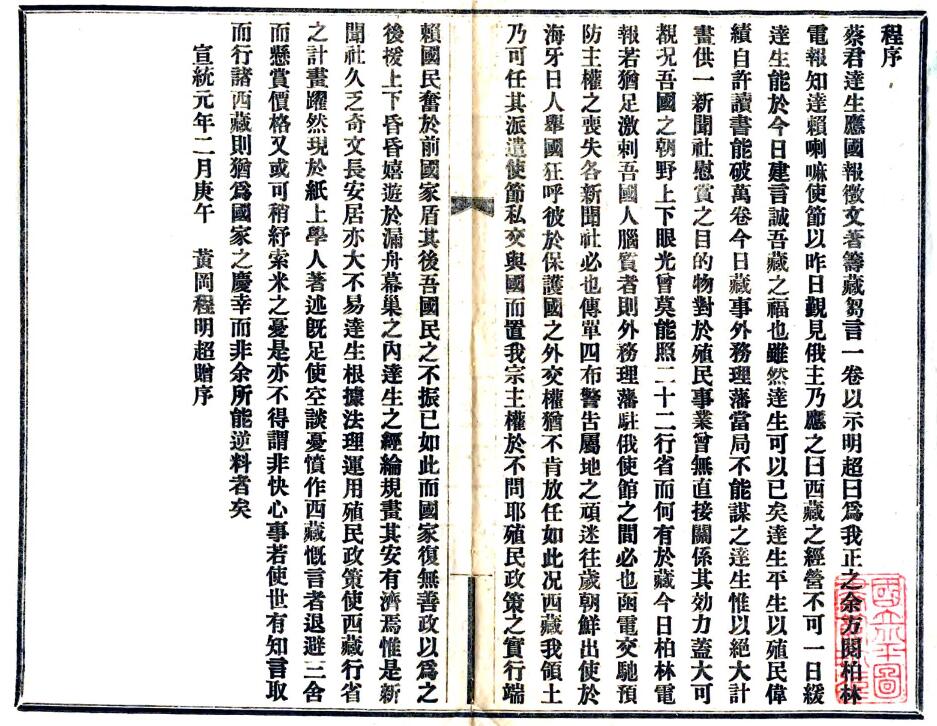 程序
蔡君達生應國報徵文著籌藏芻言一卷以示明超曰爲我正之余方閱柏林
電報知達賴喇嘛使節以昨日覲見俄主乃應之曰西藏之經營不可一日緩
達生能於今日建言誠吾藏之福也雖然達生可以已矣達生平生以殖民偉
績自許讀書能破萬卷今日藏事外務理藩當局不能謀之達生惟以絕大計
畫供一新聞社慰賞之目的物對於殖民事業曾無直接關係其効力蓋大可
覩况吾國之朝野上下眼光曾莫能照二十二行省而何有於藏今日柏林電
報若猶足激刺吾國人腦質者則外務理藩駐俄使館之間必也函電交馳預
防主權之喪失各新聞社必也傳單四布警告屬地之頑迷往歲朝鮮出使於
海牙日人舉國狂呼彼於保護國之外交權猶不肯放任如此况西藏我領土
乃可任其派遣使節私交與國而置我宗主權於不問耶殖民政策之實行端
賴國民奮於前國家盾其後吾國民之不振已如此而國家復無善政以爲之
後援上下昏昏嬉遊於漏舟幕巢之內達生之經綸規畫其安有濟焉惟是新
聞社久乏奇文長安居亦大不易達生根據法理運用殖民政策使西藏行省
之計畫躍然現於紙上學人著述旣足使空談憂憤作西藏慨言者退避三舍
而懸賞價格又或可稍紓索米之憂是亦不得謂非快心事若使世有知言取
而行諸西藏則猶爲國家之慶幸而非余所能逆料者矣
宣統元年二月庚午 黃岡程明超贈序